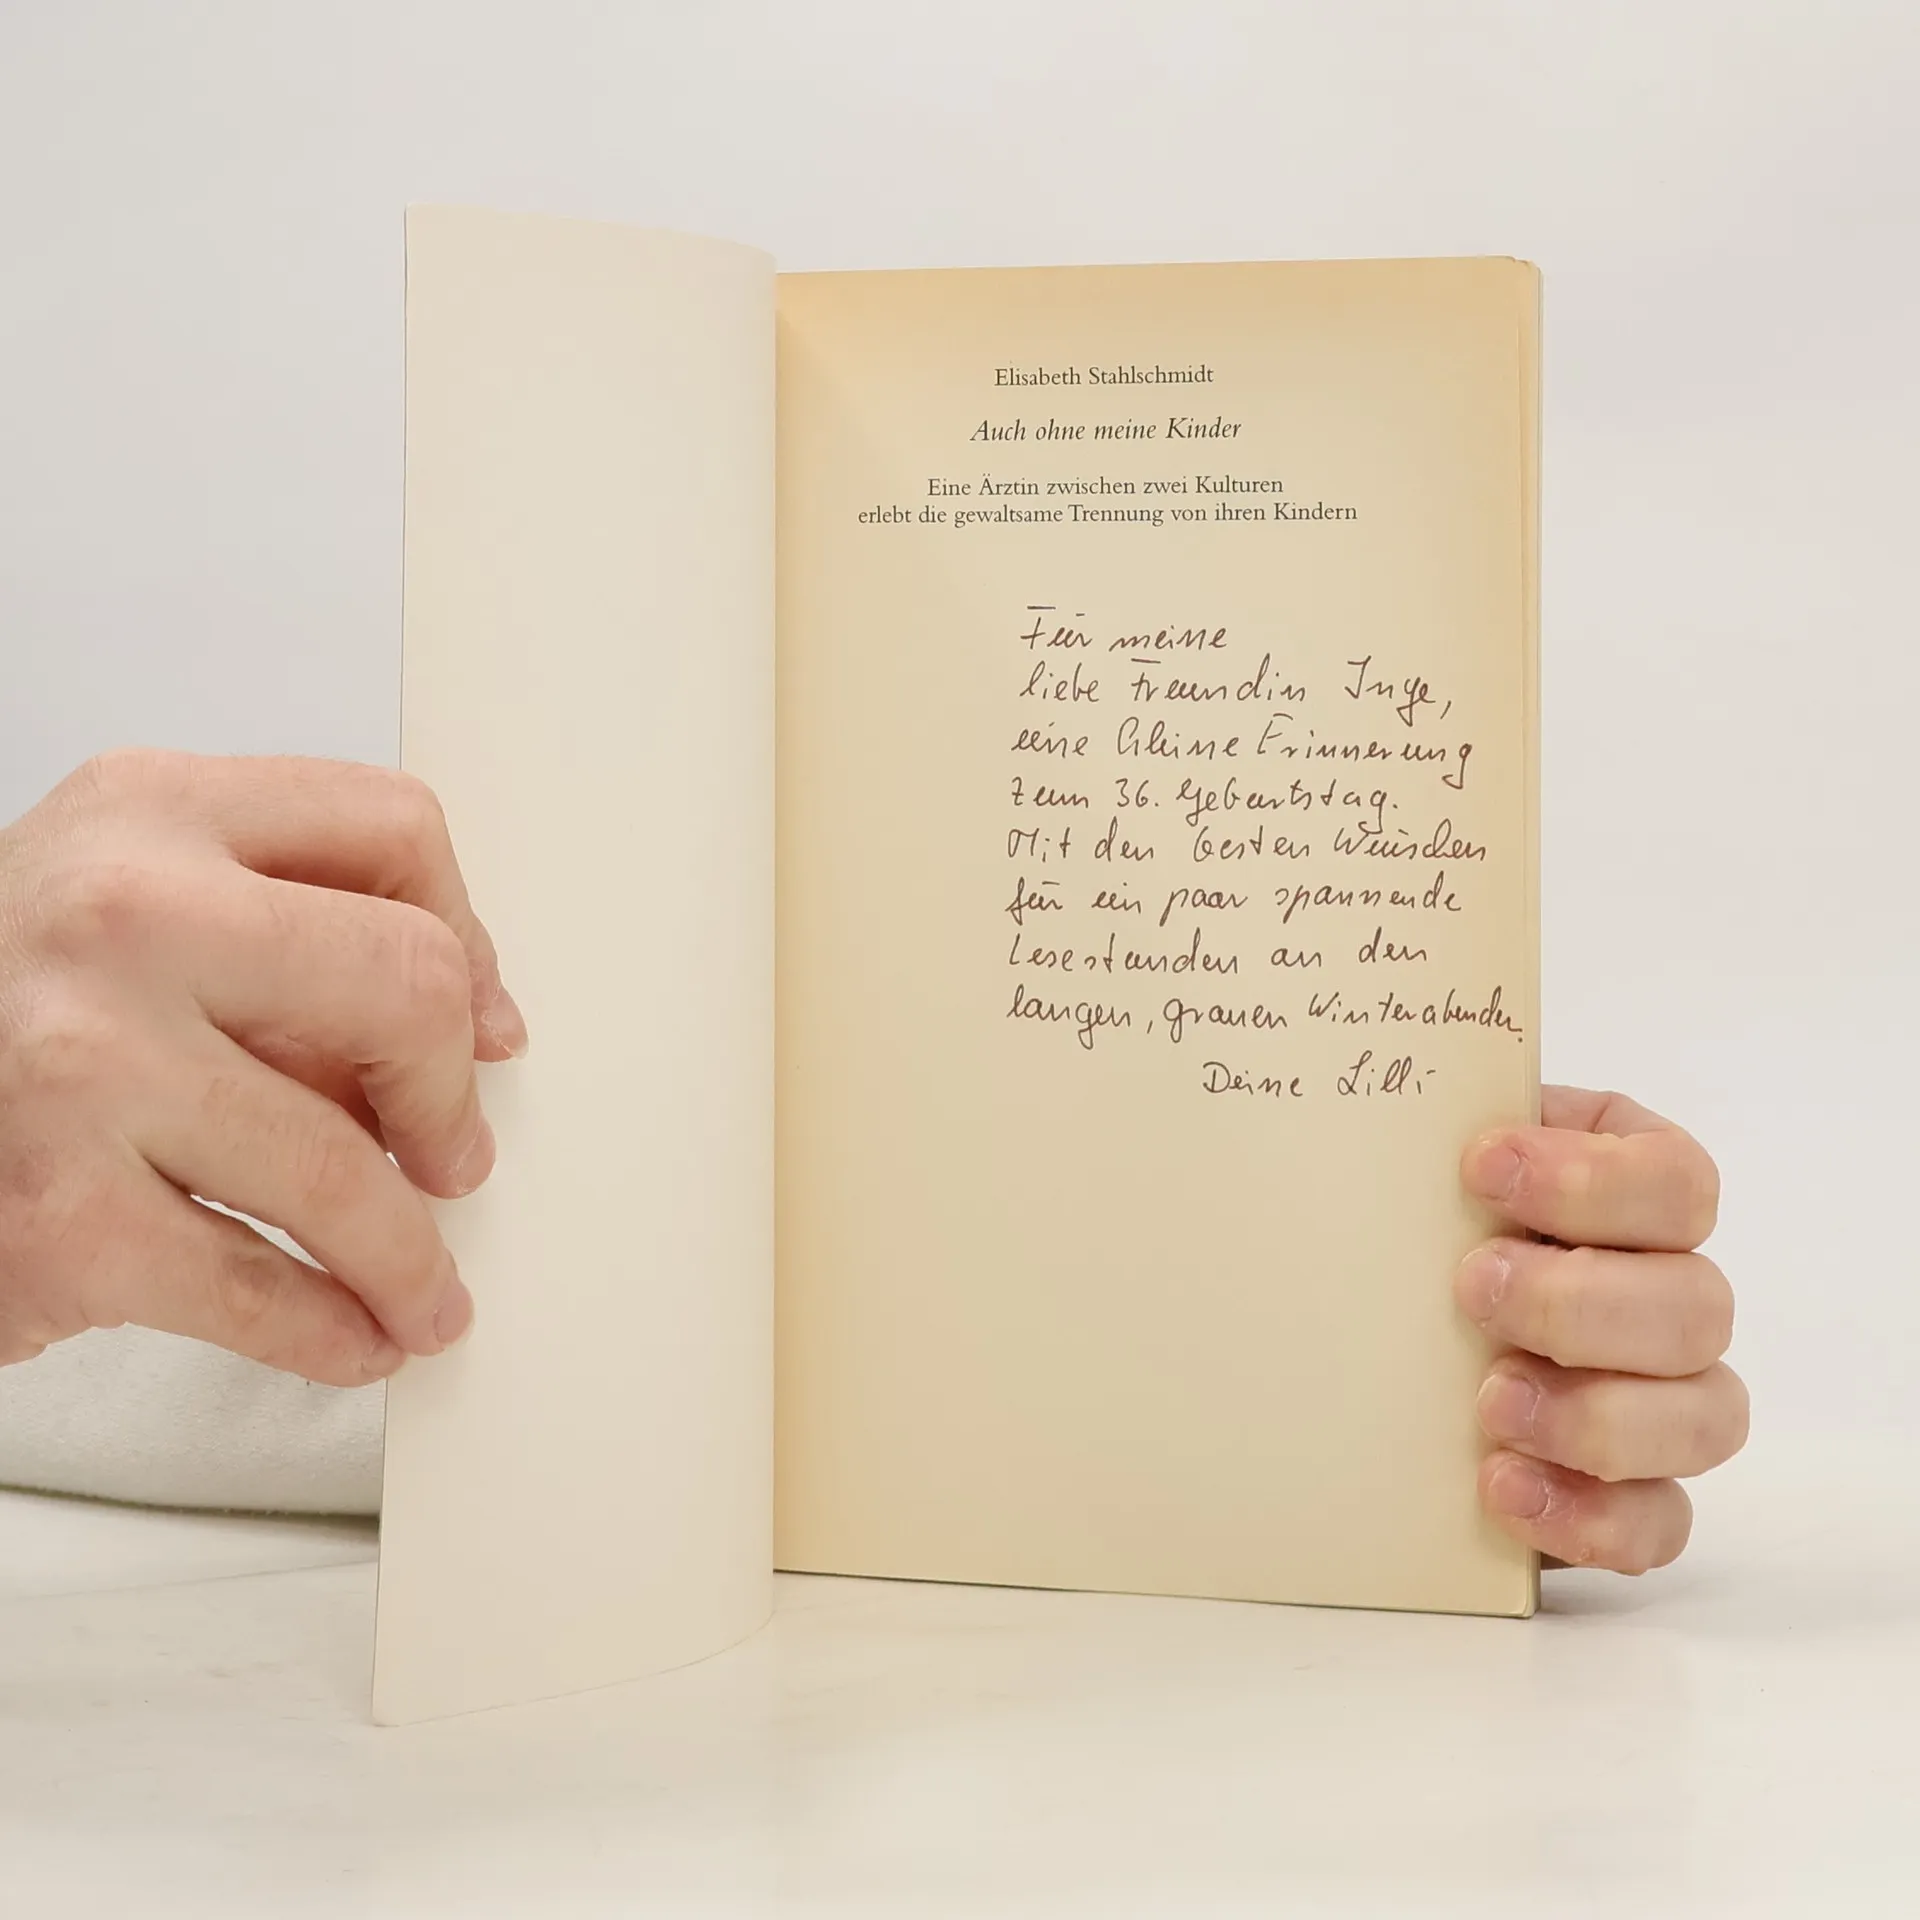 Elisabeth Stahlschmidt
Auch ohne meine Kinder
Eine Ärztin zwischen zwei Kulturen
erlebt die gewaltsame Trennung von ihren Kindern
Für meine
liebe Freundin Inge,
eine kleine Erinnerung
zum 36. Geburtstag.
Mit den besten Wünschen
für ein paar spannende
Lesestunden an den
langen, grauen Winterabenden.
Deine Lilli